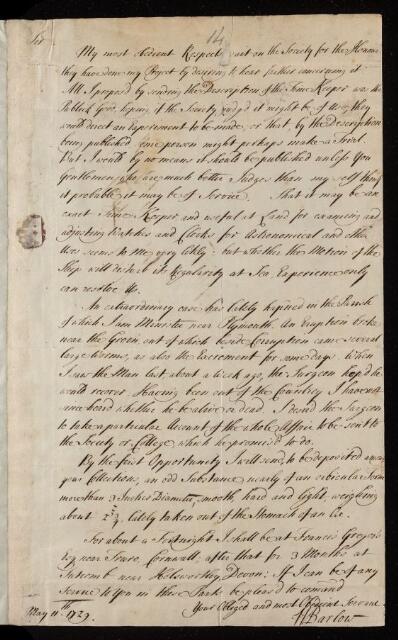 14
Sir
My most obedient Respects wait on the Society for the Honour
they have done my Project by desiring to hear farther concerning it
All I propos'd by sending the Description of the Time Keeper was the
Publick Good, hoping if the Society judg'd it might be of Use, they
would direct an Experiment to be made, or that, by the Description
being published some person might perhaps make a Trial.
But I would by no means it should be published unless You
Gentlemen who are much better Judges than my self think
it probable it may be of Service. That it may be an
exact Time Keeper and useful at Land for examining and
adjusting Watches and Clocks for Astronomical and other
Uses seems to me very likely: but whether the Motion of the
Ship will disturb its Regularity at Sea, Experience only
can resolve Us.
An extraordinary case has lately happened in the Parish
of which I am Minister near Plymouth. An Eruption broke
near the Groin out of which beside Corruption came several
large Worms, as also the Excrement for some days. When
I saw the Man last about a Week ago, the Surgeon hop'd he
would recover. Having been out of the Country I have not
since heard whether he be alive or dead. I desir'd the Surgeon
to take a particular Account of the whole Affair to be sent to
the Society or College, which he promis'd to do.
By the first Opportunity I will send, to be deposited among
your Collections, an odd Substance nearly of an orbicular Form
more than 3 Inches Diameter, smooth, hard and light, weighing
about lately taken out of the Stomach of an Ox.
For about a Fortnight I shall be at Francis Gregor's
Esq near Truro, Cornwall, after that for 3 Months at
near Holsworthy, Devon: If I can be of any
Service to You in these Parts be pleas'd to command
Your Obliged and most Obedient Servant
May 11th 1729. Barlow